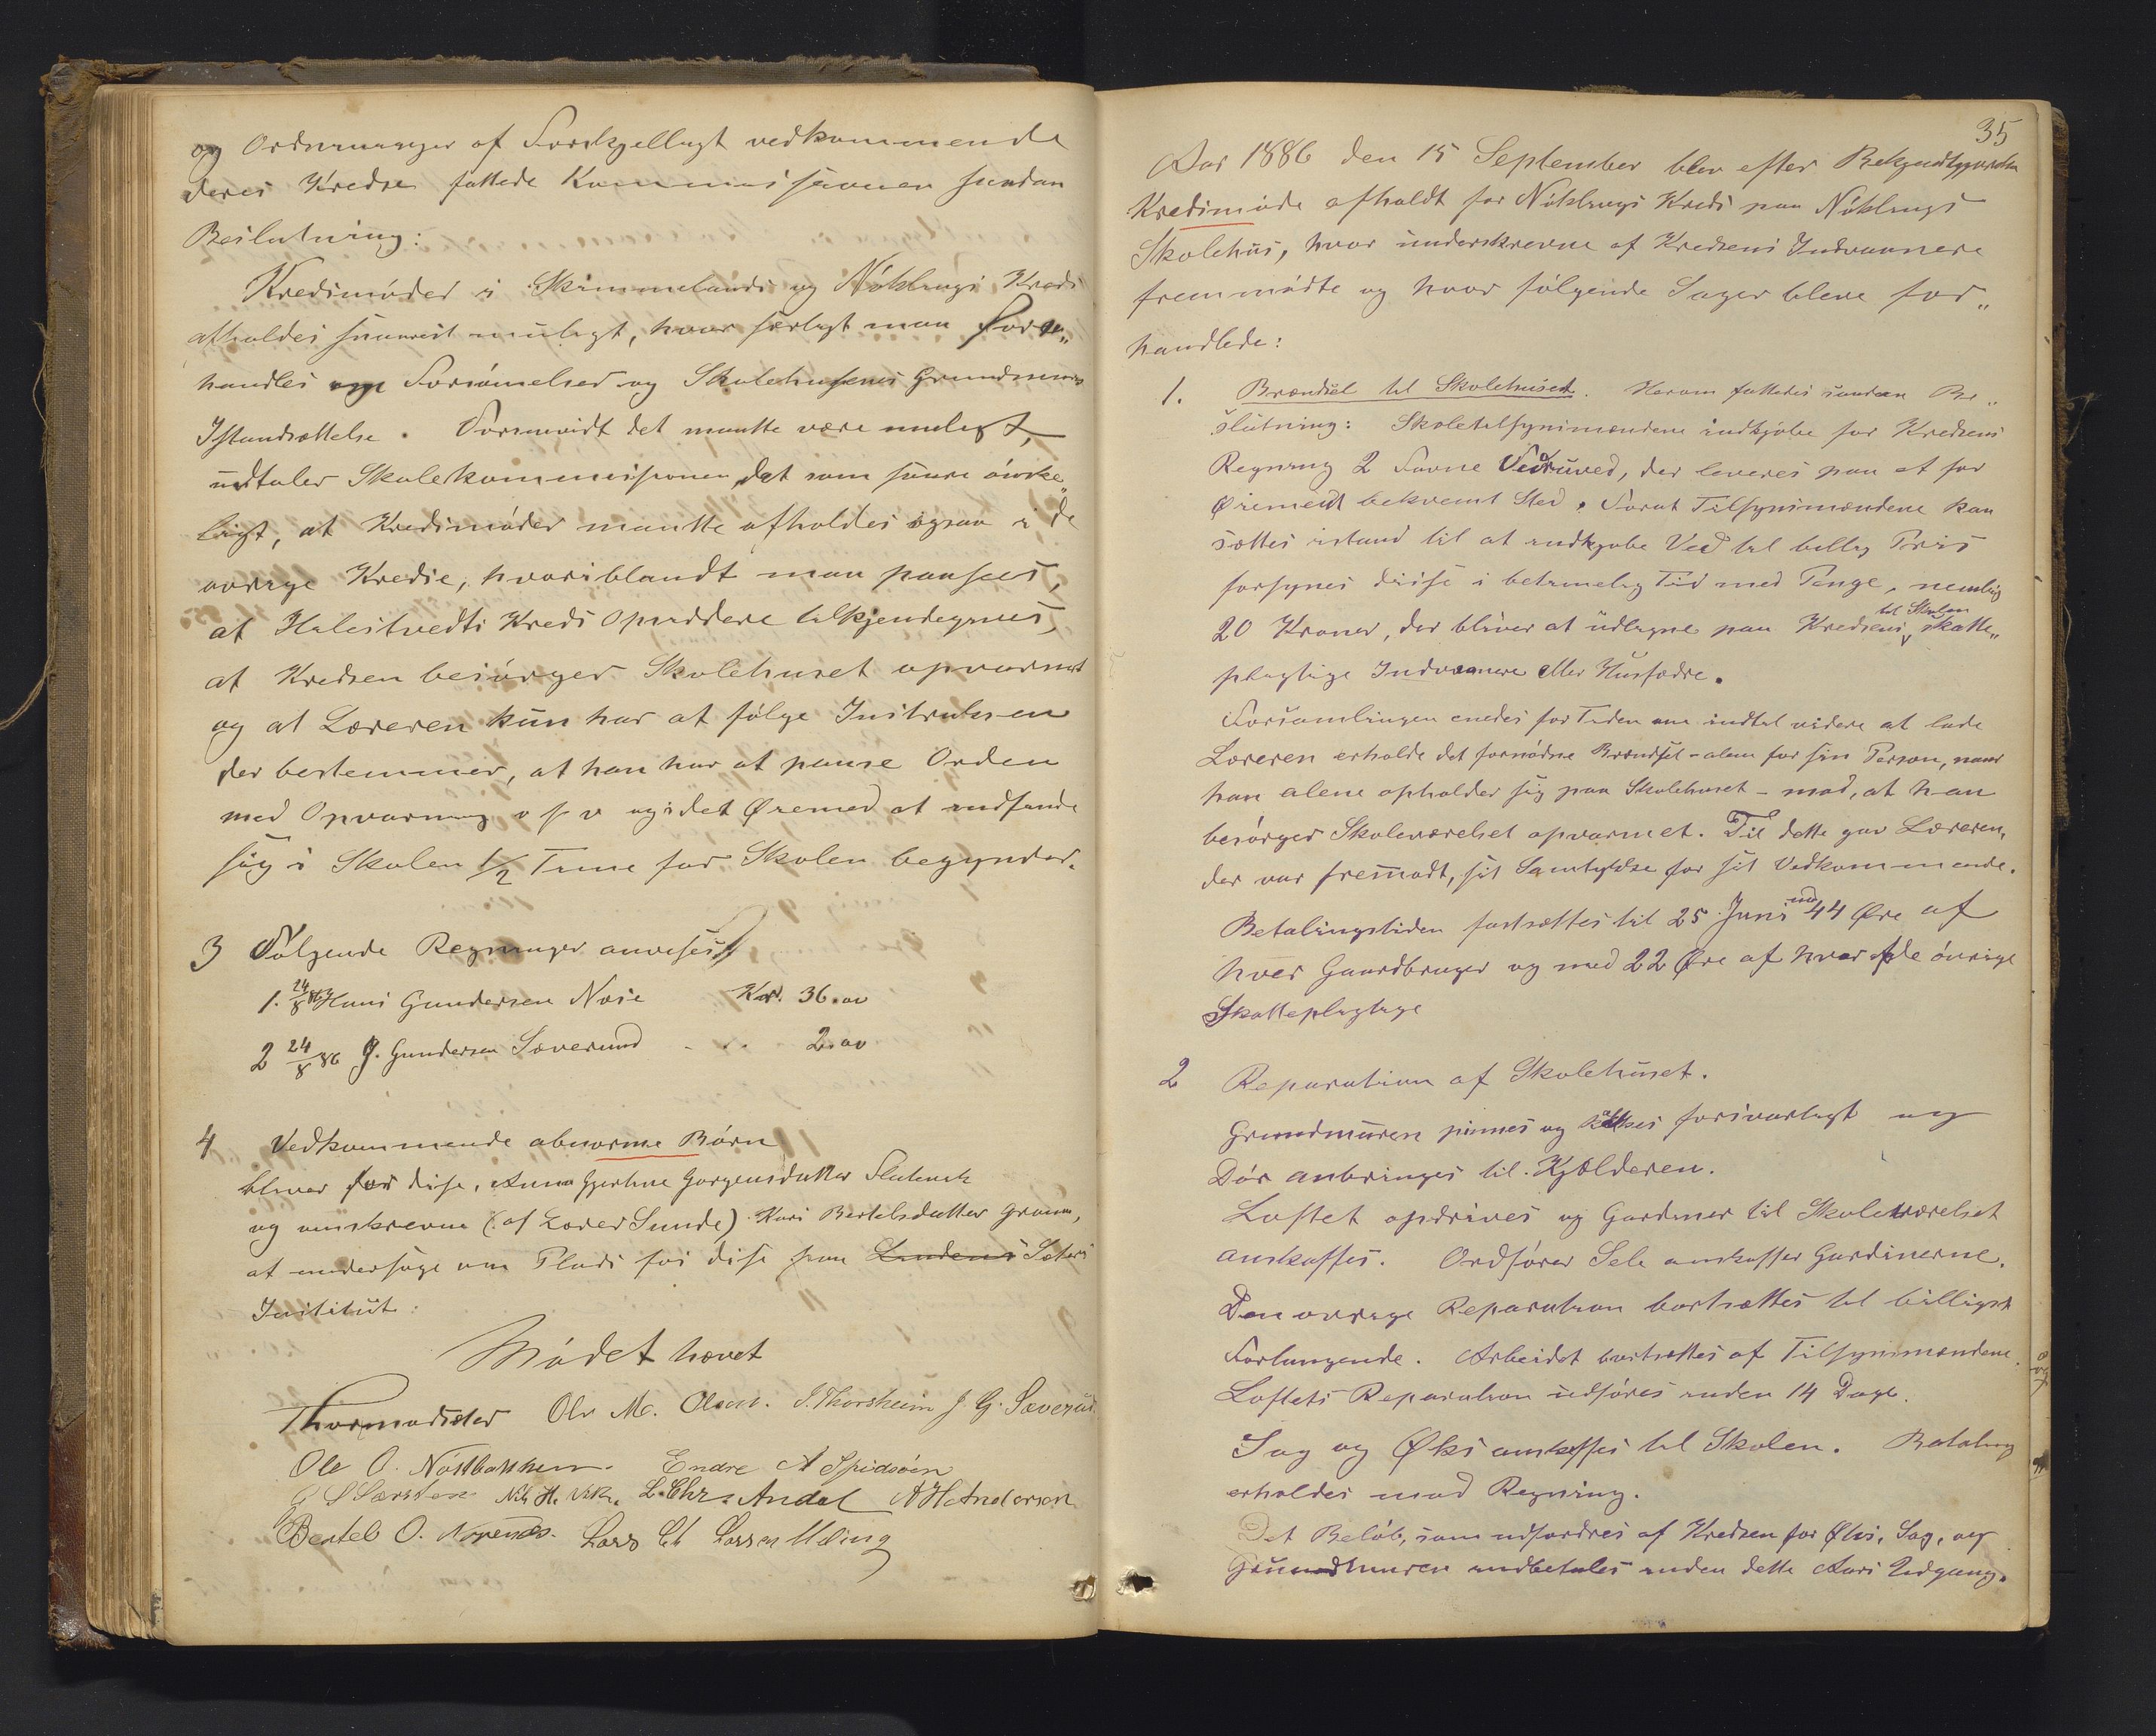 og Ordninger af Forskjelligt vedkommende
deres Kredse fattede Kommissionen saadan
Beslutning:
Kredsmøder i Skimmelands og Nøklings Kreds
afholdes snarest muligt, hvor særligt maa for„
handles om Forsømmelser og Skolehusenes Grundmures
Istandsættelse. Forsaavidt det maatte være muligt,
udtaler Skolekommissionen det som høist ønske„
ligt, at Kredsmøder maatte afholdes ogsaa i de
øvrige Kredse, hvoriblandt maa paasees,
at Halestvedts Kreds Opsiddere tilkjendegives,
at Kredsen besørger Skolehuset opvarmet
og at Læreren kun har at følge Instruksen
der bestemmer, at han har at paase Orden
med Opvarmning o s v og i det Øiemed at indfinde
sig i Skolen 1/2 Time før Skolen begynder.
3 Følgende Regninger anvises
1. 24/8 86 Hans Gundersen Næse Kr. 36.00
2 24/8 86 J. Gundersen Sæverud - „ 2.00
4 Vedkommende abnorme Børn
bliver for disse, Anna Gjertine Gorgensdatter
og omskrevne (af Lærer Sunde) Kari Bertelsdatter
at undersøge om Plads for disse paa Lindens
Institut:
Mødet hævet
Thormodsæter Ole M. Olsen. I. Thorsheim J G. Sæverud
Ole O. Nøstbakken. Endre A Spidsøen
Nils H. Vik. L. Chr. Andal A H Anderson
Bertel O. Lars Ch Larsen Meling
35
Aar 1886 den 15 September blev efter Bekjendtgjørelse
Kredsmøde afholdt for Nøklings Kreds paa Nøklings
Skolehus, hvor underskrevne af Kredsens Indvaanere
fremmødte og hvor følgende Sager bleve for„
handlede:
1. Brændsel til Skolehuset. Herom fattedes saadan Be„
slutning: Skoletilsynsmændene indkjøbe for Kredsens
Regning 2 Favne Ved, der leveres paa et for
Øiemedet bekvemt Sted. Forat Tilsynsmændene kan
sættes istand til at indkjøbe Ved til billig Pris
forsynes disse i betimelig Tid med Penge, nemlig
20 Kroner, der bliver at udligne paa Kredsens til Skolen skatte„
pligtige Indvaanere eller Husfædre.
Forsamlingen enedes for Tiden om indtil videre at lade
Læreren erholde det fornødne Brændsel - alene for sin Person, naar
han alene opholder sig paa Skolehuset - mod, at han
besørger Skoleværelset opvarmet. Til dette gav Læreren,
der var fremmødt, sit Samtykke for sit Vedkommende.
Betalingstiden fastsættes til 25 Juni med 44 Øre af
hver Gaardbruger og med 22 Øre af hver af de øvrige
Skattepligtige
2 Reparation af Skolehuset.
Grundmuren pinnes og kalkes forsvarligt og
Dør anbringes til Kjælderen.
Loftet opdrives og Gardiner til Skoleværelset
anskaffes. Ordfører Sele anskaffer Gardinerne.
Den øvrige Reparation bortsættes til billigst
Forlangende. Arbeidet bortsættes af Tilsynsmændene.
Loftets Reparation udføres inden 14 Dage.
Sag og Øks anskaffes til Skolen. Betaling
erholdes mod Regning.
Det Beløb, som udfordres af Kredsen for Øks, Sag, og
Grundmuren indbetales inden dette Aars Udgang.